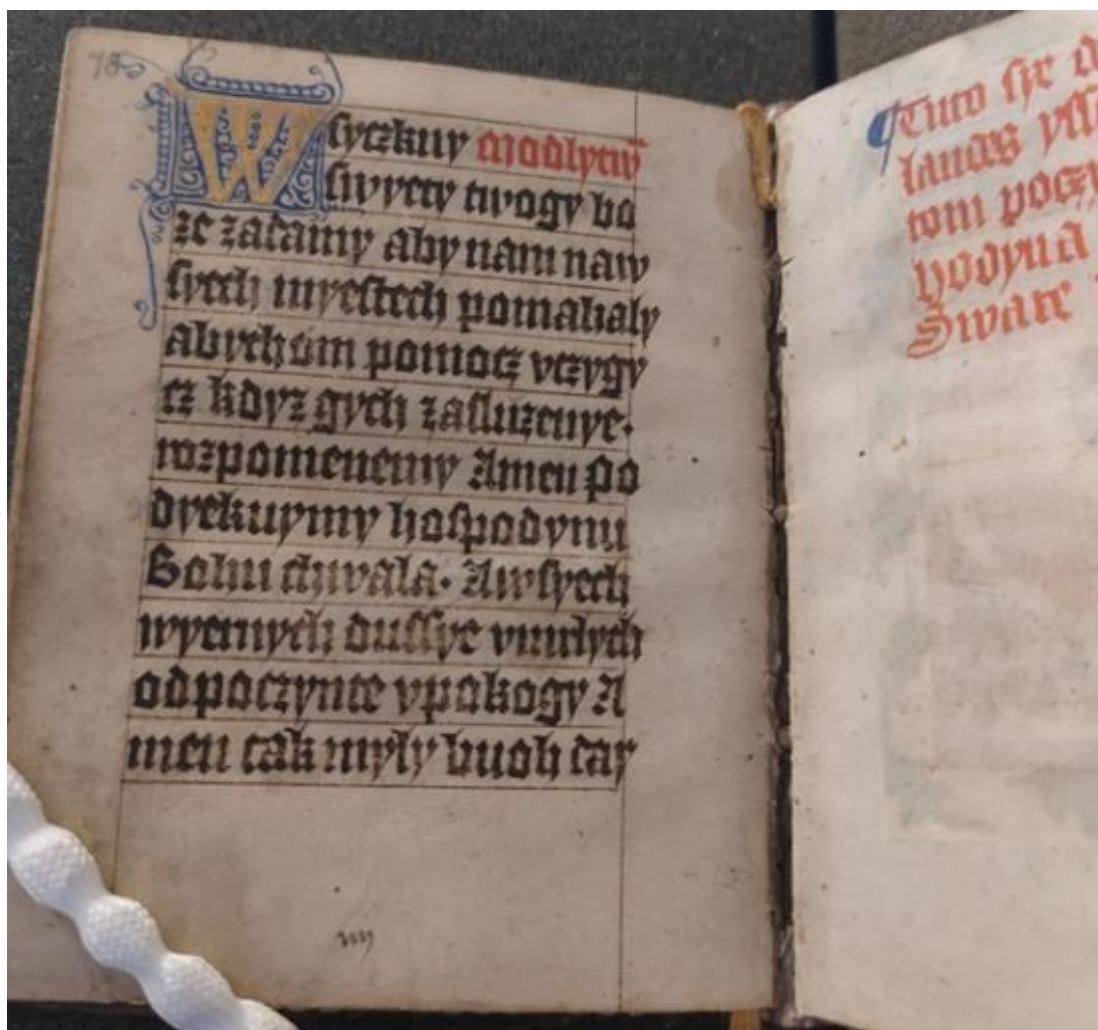 Wsyczkny modlytw̄
swyety twogy bo
ze zadamy aby nam naw
syech myestech pomahaly
abychom pomocz vczygy
cz kdyz gych zasluzenye·
rozpomenemy Amen Po
dyekuymy hospodynu
Bohu chwala· A wsyech
wyernych dussye vmrlych
odpoczynte vpokogy A
men tak myly buoh day
¶ Tuto sye
laudes
tom
hodyna
Swate